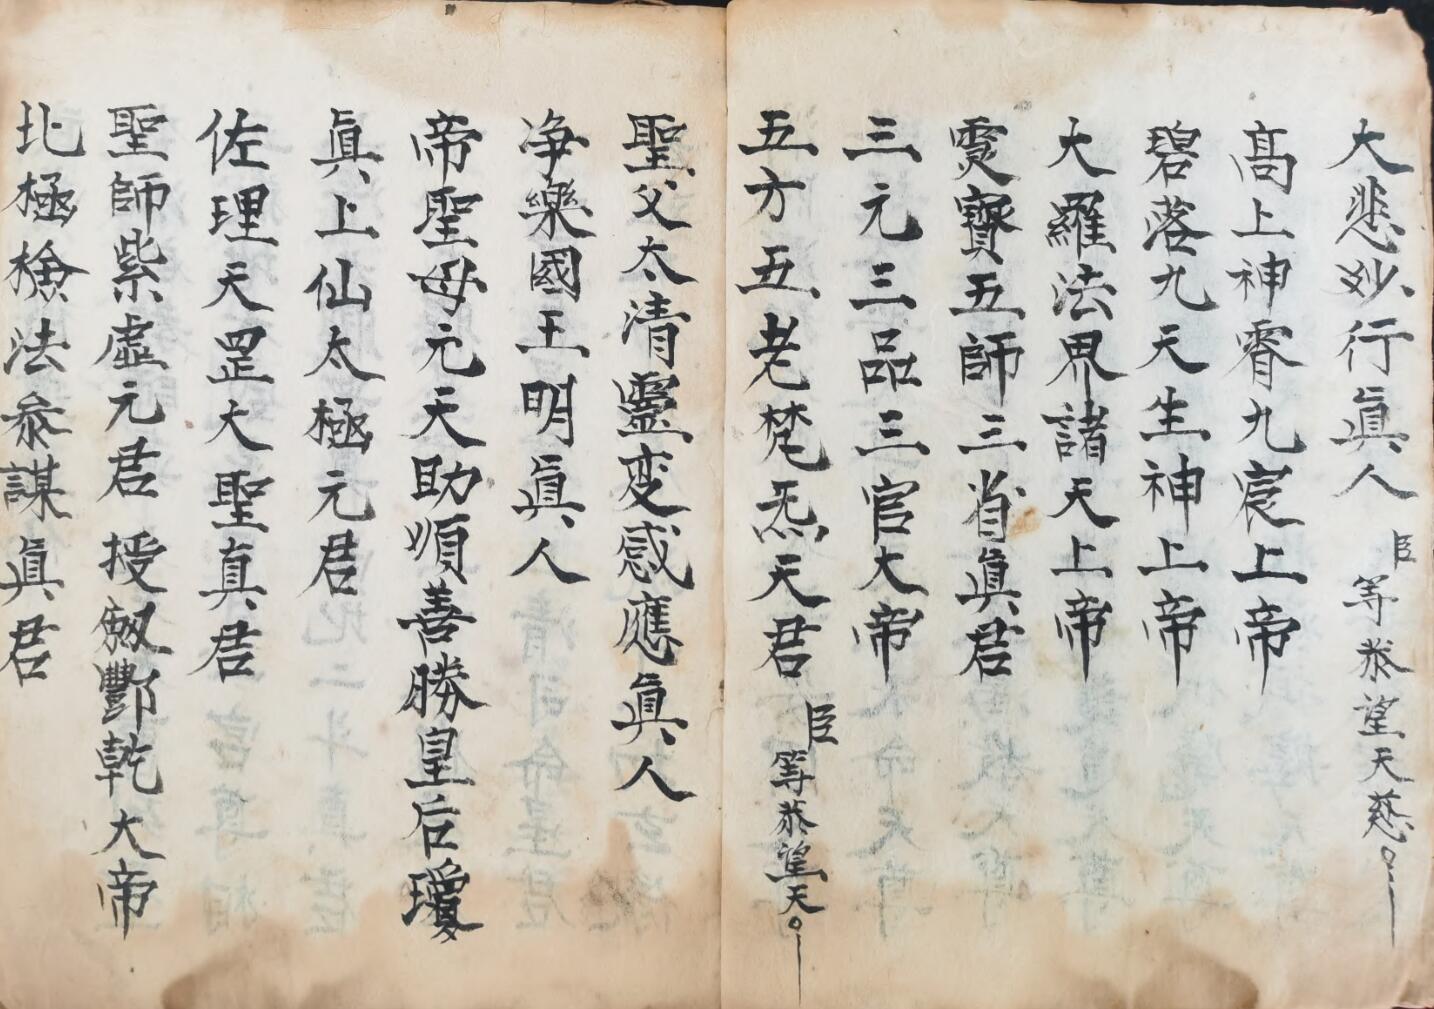 大悲妙行眞人 臣等恭望天慈
髙上神霄九宸上帝
碧落九天生神上帝
大羅法界諸天上帝
霊寳五師三省眞君
三元三品三官大帝
五方五老梵炁天君 臣等恭望天
聖父太清靈变感應眞人
净樂國王明眞人
帝聖母元天助順善勝皇后瓊
眞上仙太極元君
佐理天罡大聖真君
聖師紫虛元君 授劔酆乾大帝
北極檢法叅謀眞君